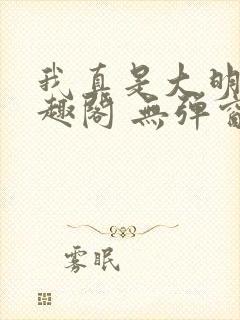 我真是大明
趣阁 无弹窗
雾眠